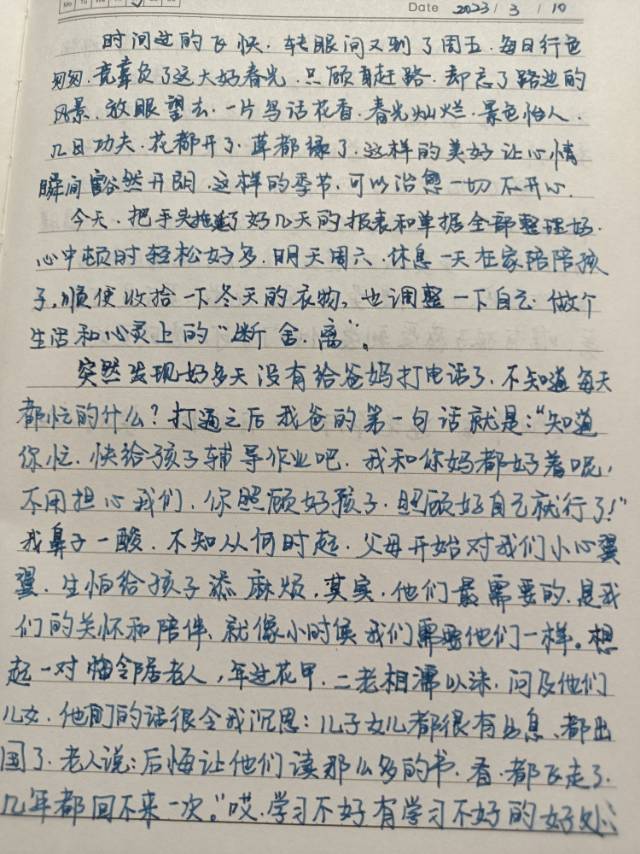 Date 2023 / 3 / 10
时间过的飞快，转眼间又到了周五，每日行色
匆匆，竟辜负了这大好春光，只顾着赶路，却忘了路边的
风景，放眼望去，一片鸟语花香，春光灿烂，景色怡人，
几日功夫，花都开了，草都绿了，这样的美好让心情
瞬间豁然开朗，这样的季节，可以治愈一切不开心。
今天，把手头拖延了好几天的报表和单据全部整理好，
心中顿时轻松好多，明天周六，休息一天在家陪陪孩
子，顺便收拾一下冬天的衣物，也调整一下自己，做个
生活和心灵上的“断、舍、离”。
突然发现好多天没有给爸妈打电话了，不知道每天
都忙的什么？打通之后我爸的第一句话就是：“知道
你忙，快给孩子辅导作业吧，我和你妈都好着呢，
不用担心我们，你照顾好孩子，照顾好自己就行了！”
我鼻子一酸，不知从何时起，父母开始对我们小心翼
翼，生怕给孩子添麻烦，其实，他们最需要的，是我
们的关怀和陪伴，就像小时候我们需要他们一样。想
起一对邻居老人，年过花甲，二老相濡以沫，问及他们
儿女，他们的话很令我沉思：儿子女儿都很有出息，都出
国了，老人说：后悔让他们读那么多的书，看，都飞走了，
几年都回不来一次。”哎，学习不好有学习不好的好处，